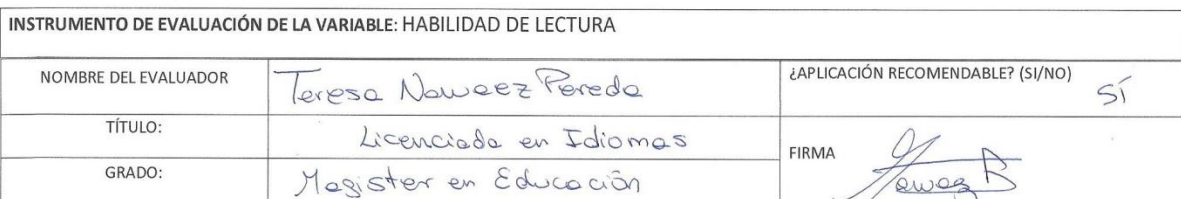 INSTRUMENTO DE EVALUACIÓN DE LA VARIABLE: HABILIDAD DE LECTURA
NOMBRE DEL EVALUADOR Teresa Pereda ¿APLICACIÓN RECOMENDABLE? (SI/NO) SÍ
TÍTULO: Licenciada en Idiomas
FIRMA
GRADO: Magister en Educación